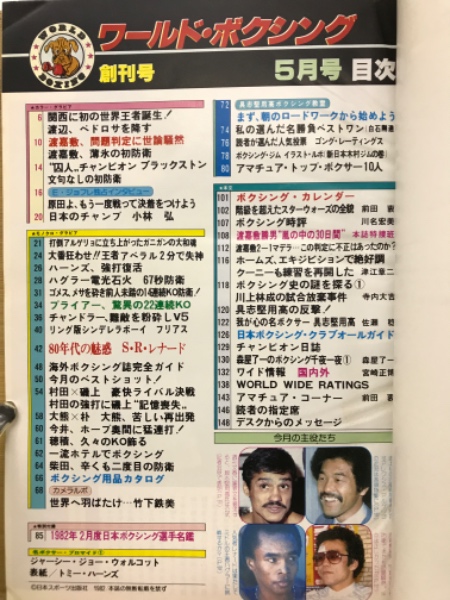 WORLD BOXING
ワールド・ボクシング
創刊号
5月号 目次
■カラー・グラビア
6 関西に初の世界王者誕生!
渡辺、ペドロサを降す
10 渡嘉敷、問題判定に世論騒然
渡嘉敷、薄氷の初防衛
14 “囚人„チャンピオン ブラックストン
文句なしの初防衛
16 E・ジョフレ独占インタビュー
原田よ、もう一度戦って決着をつけよう
20 日本のチャンプ 小林 弘
■モノクロ・グラビア
21 打倒アルゲリョに立ち上がったガニガンの大和魂
24 大番狂わせ!王者アベラル2分で失神
26 ハーンズ、強打復活
28 ハグラー電光石火 67秒防衛
31 ゴメス、メサを砕き前人未踏の14連続KO防衛!
34 プライアー、驚異の22連続KO
36 チャンドラー、難敵を粉砕しV5
40 リング版シンデレラボーイ フリアス
42 80年代の魅惑 S・R・レナード
48 海外ボクシング誌完全ガイド
50 今月のベストショット!
54 村田×磯上 豪快ライバル決戦
村田の強打に磯上“記憶喪失„
58 大熊×朴 大熊、苦しい再出発
60 今井、ホープ奥間に猛連打!
61 穂積、久々のKO飾る
62 一流ホテルでボクシング
64 柴田、辛くも二度目の防衛
66 ボクシング用品カタログ
68 カメラルポ
世界へ羽ばたけ…竹下鉄美
85 1982年2月度日本ボクシング選手名鑑
名ボクサー・ブロマイド①
ジャーシー・ジョー・ウォルコット
表紙/トミー・ハーンズ
©日本スポーツ出版社 1982 本誌の無断転載を禁ず
72 具志堅用高ボクシング教室
まず、朝のロードワークから始めよう
74 私の選んだ名勝負ベストワン
76 読者が選んだ人気投票 ゴング・レーティングス
78 ボクシング・ジム イラスト・ルポ(新日本木村ジムの巻)
80 アマチュア・トップ・ボクサー10人
■本文
101 ボクシング・カレンダー
102 階級を超えたスターウォーズの全貌 前田
107 ボクシング時評 川名宏美
108 渡嘉敷勝男“嵐の中の30日間” 本誌特捜班
112 渡嘉敷2-1マデラ…この判定に不正はあったのか?
116 ホームズ、エキジビションで絶好調
クーニーも練習を再開した 津江章二
118 ボクシング史の謎を探る①
川上林成の試合放棄事件 寺内大吉
120 具志堅用高の反撃!
122 我が心の名ボクサー 具志堅用高 佐瀬 稔
126 日本ボクシング・クラブオールガイド
129 チャンピオン日誌
130 森屋了一のボクシング千夜一夜① 森屋了一
132 ワイド情報 国内外 宮崎正博
138 WORLD WIDE RATINGS
143 アマチュア・コーナー 前田
146 読者の指定席
148 デスクからのメッセージ
今月の主役たち